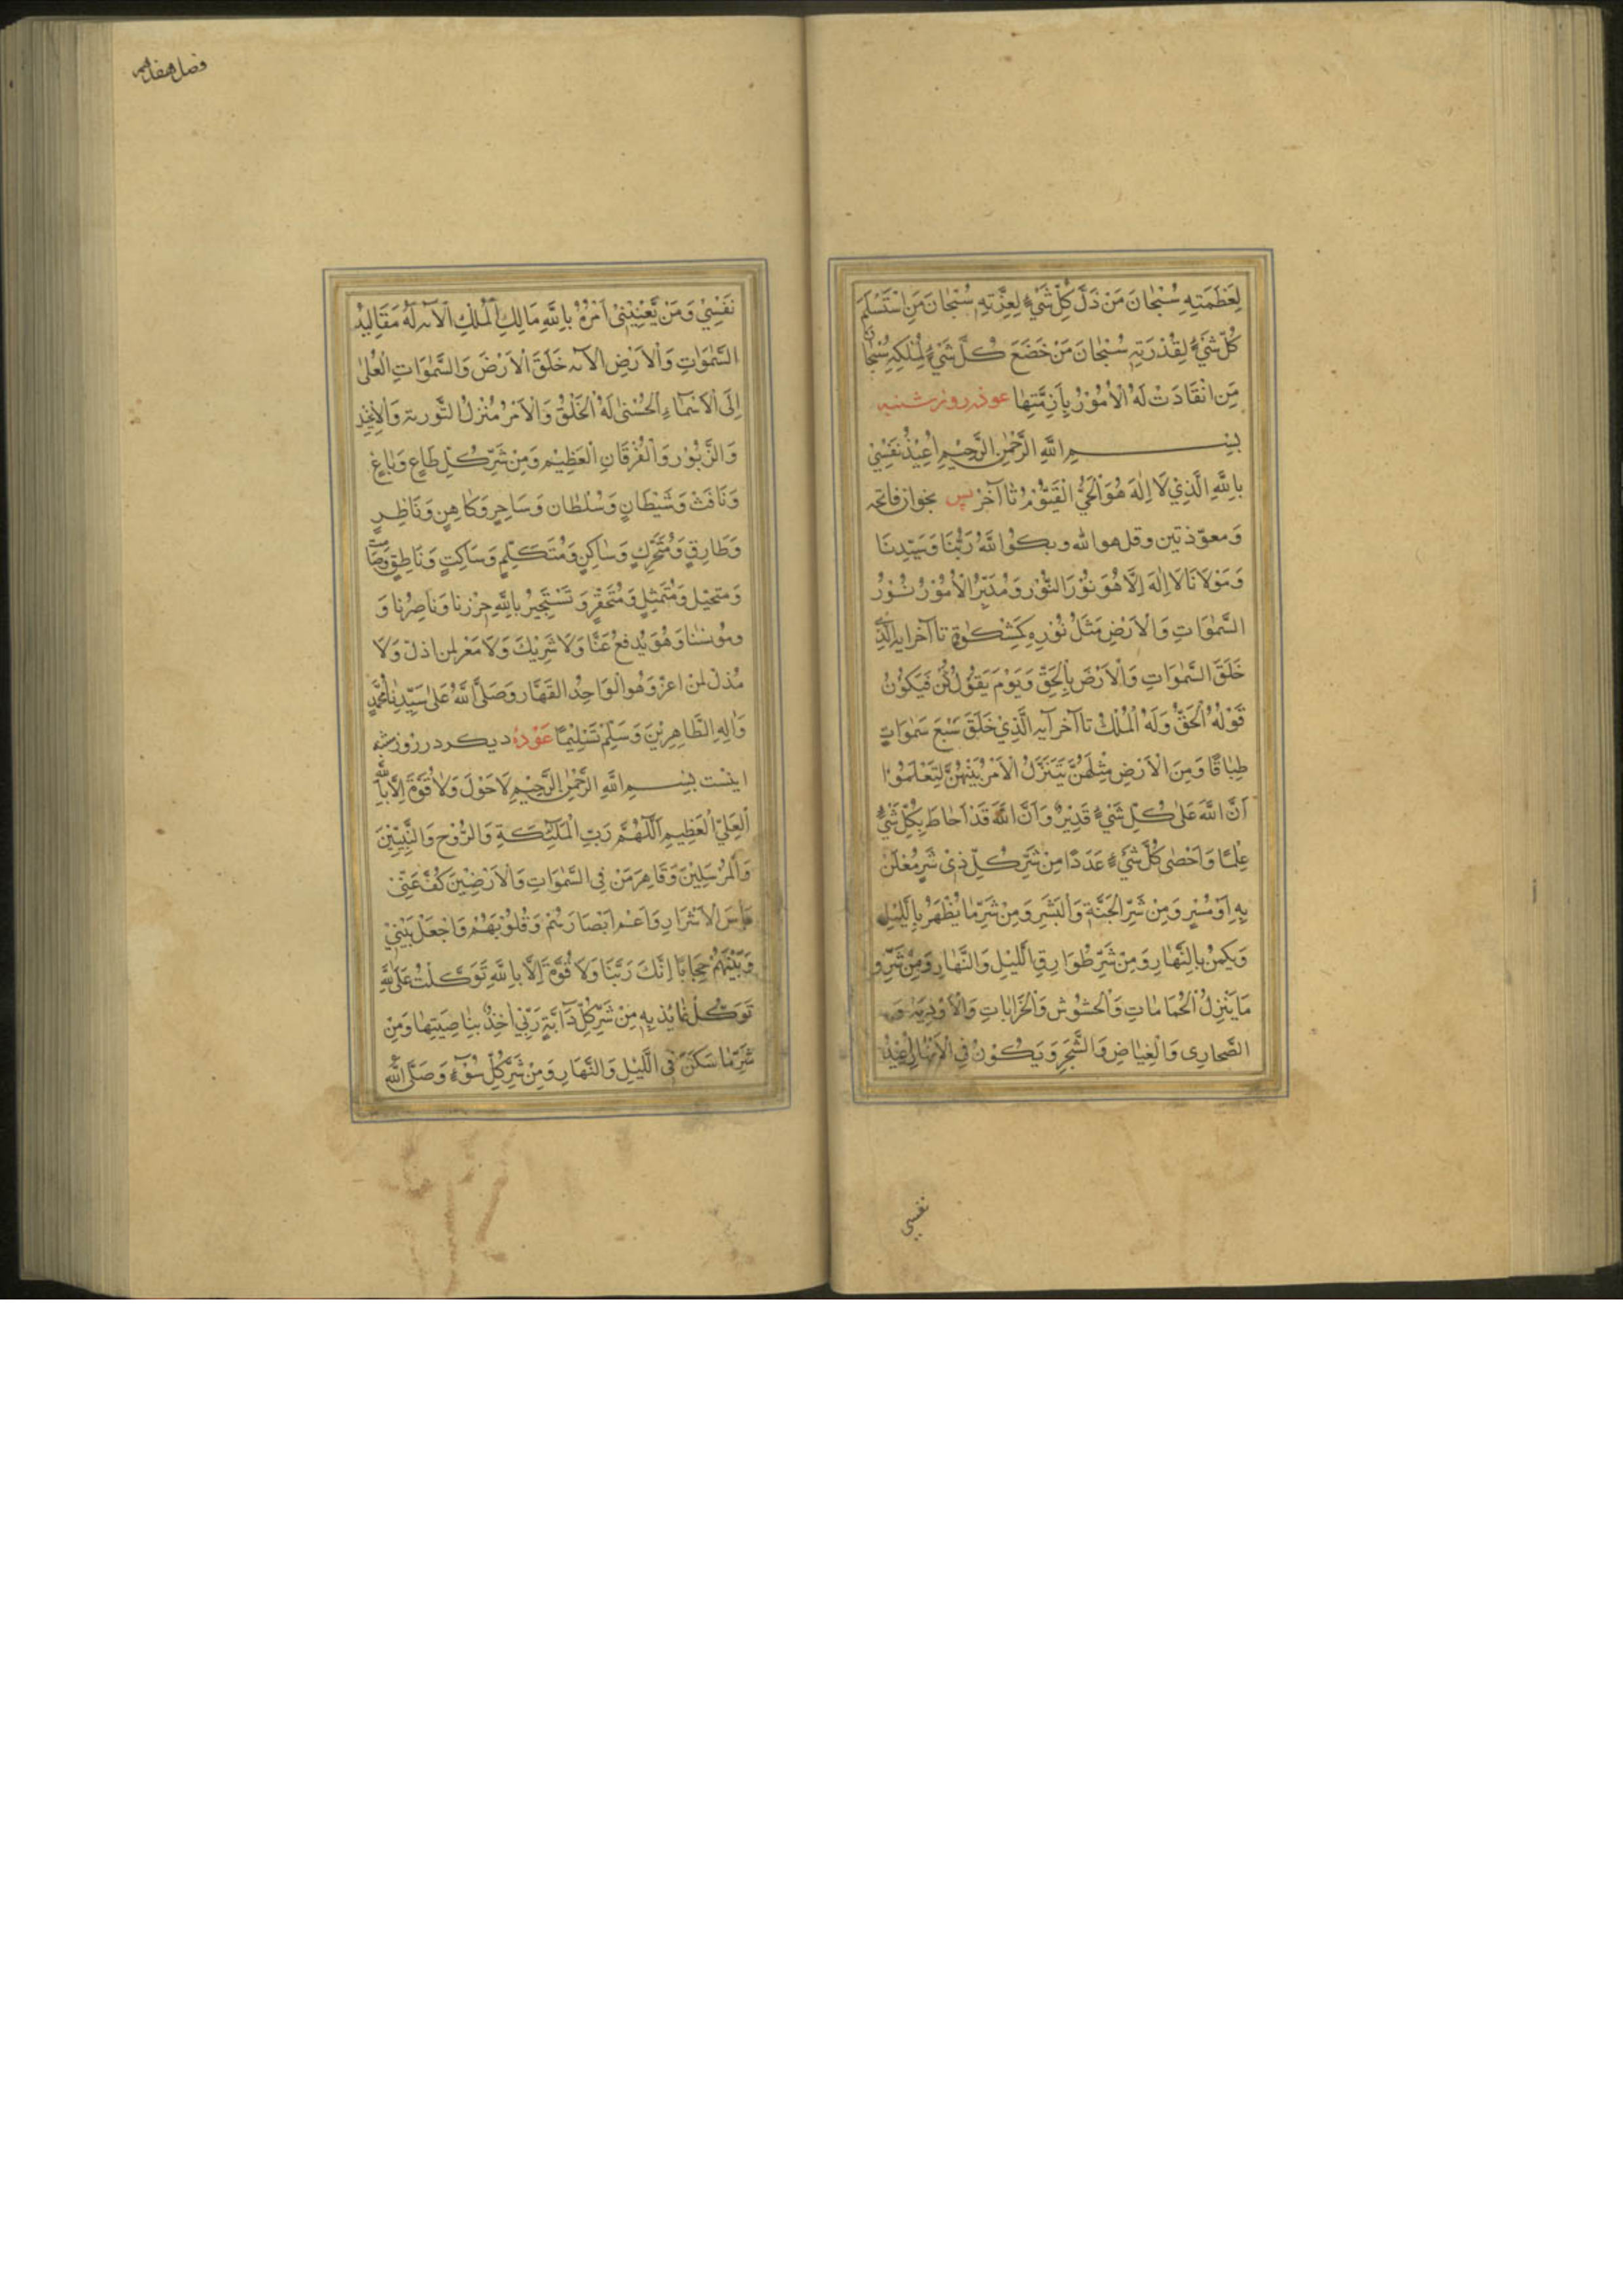 لِعَظَمَتِهِ سُبْحَانَ مَنْ ذَلَّ كُلُّ شَيْءٍ لِعِزَّتِهِ سُبْحَانَ مَنِ اسْتَسْلَمَ
كُلُّ شَيْءٍ لِقُدْرَتِهِ سُبْحَانَ مَنْ خَضَعَ كُلُّ شَيْءٍ لِمُلْكِهِ سُبْحَانَ
مَنِ انْقَادَتْ لَهُ الْأُمُوْرُ بِأَزِمَّتِهَا عوذه روز شنبه
بِسْمِ اللَّهِ الرَّحْمٰنِ الرَّحِيْمِ اُعِيْذُ نَفْسِيْ
بِاللَّهِ الَّذِيْ لَا اِلٰهَ هُوَ الْحَيُّ الْقَيُّوْمُ تا آخر پس بخواز فاتحه
وَمعوّذتين وقل هو الله وبكو اللَّهُ رَبُّنَا وَسَيِّدِنَا
وَمَوْلَانَا لَا اِلٰهَ اِلَّا هُوَ نُوْرُ النُّوْرِ وَمُدَبِّرُ الْاُمُوْرِ نُوْرُ
السَّمٰوَاتِ وَالْاَرْضِ مَثَلُ نُوْرِهِ كَمِشْكٰوةٍ تا آخر ايه الَّذِيْ
خَلَقَ السَّمٰوَاتِ وَالْاَرْضَ بِالْحَقِّ وَيَوْمَ يَقُوْلُ كُنْ فَيَكُوْنُ
قَوْلُهُ الْحَقُّ وَلَهُ الْمُلْكُ تا آخر آيه الَّذِيْ خَلَقَ سَبْعَ سَمٰوَاتٍ
طِبَاقًا وَمِنَ الْاَرْضِ مِثْلَهُنَّ يَتَنَزَّلُ الْاَمْرُ بَيْنَهُنَّ لِتَعْلَمُوْا
اَنَّ اللَّهَ عَلٰى كُلِّ شَيْءٍ قَدِيْرٌ وَاَنَّ اللَّهَ قَدْ اَحَاطَ بِكُلِّ شَيْءٍ
عِلْمًا وَاَحْصٰى كُلَّ شَيْءٍ عَدَدًا مِنْ شَرِّ كُلِّ ذِيْ شَرٍّ مُعْلَنٍ
بِهِ اَوْ مُسِرٍّ وَمِنْ شَرِّ الْجِنَّةِ وَالْبَشَرِ وَمِنْ شَرِّ مَا يُظْهَرُ بِاللَّيْلِ
وَيكمنُ بِالنَّهَارِ وَمِنْ شَرِّ طَوَارِقِ اللَّيْلِ وَالنَّهَارِ وَمِنْ شَرِّ
مَا يَنْزِلُ الْحَمَّامَاتِ وَالْحشوْش وَالْخَرَابَاتِ وَالْاَوْدِيَةِ وَ
الصَّحَارى وَالْغِيَاضِ وَالشَّجَرِ وَيَكُوْنُ فِي الْاَنْهَارِ اُعِيْذُ
نفسى
فصل هفدهم
نَفْسِيْ وَمَنْ يَّعْنِيْنِيْ اَمْرُهُ بِاللَّهِ مَالِكِ الْمُلْكِ الْآيه لَهُ مَقَالِيْدُ
السَّمٰوَاتِ وَالْاَرْضِ الآيه خَلَقَ الْاَرْضَ وَالسَّمٰوَاتِ الْعُلٰى
اِلَى الْاَسْمَاءِ الْحُسْنٰى لَهُ الْخَلْقُ وَالْاَمْرُ مُنْزِلُ التَّوْرٰيةِ وَالْاِنْجِيْلِ
وَالزَّبُوْرِ وَالْفُرْقَانِ الْعَظِيْمِ وَمِنْ شَرِّ كُلِّ طَاغٍ وَبَاغٍ
وَنَافَثْ وَشَيْطَانٍ وَسُلْطَان وَسَاحِرٍ وَكَاهِنٍ وَنَاظِرٍ
وَطَارِقٍ وَمُتَحَرِّكٍ وَسَاكِنٍ وَمُتَكَلِّمٍ وَسَاكِتٍ وَنَاطِقٍ وَصَامِتٍ
وَمتخيْلٍ وَمُتَمَثِلٍ وَمُتَحَقِّرٍ وَنَسْتَجِيْرُ بِاللَّهِ حِرْزنا وَنَاصِرُنا وَ
ومُونسنا وَهُوَ يُدفعُ عَنَّا وَلَا شَرِيْكَ وَلَا مَعْز لمن اذل وَلَا
مُذلّ لمنْ اعزّ وَهُوَ الْوَاحِدُ القَهَّار وَصَلَّى اللَّهُ عَلٰى سَيِّدِنَا مُحَمَّدٍ
وَاٰلِهِ الطَّاهِرِيْنَ وَسَلِّمْ تَسْلِيْمًا عَوْذهٔ ديكر در روز شنبه
اينست بِسْمِ اللَّهِ الرَّحْمٰنِ الرَّحِيْمِ لَا حَوْلَ وَلَا قُوَّةَ اِلَّا بِاللَّهِ
الْعَلِيِّ الْعَظِيْمِ اَللّٰهُمَّ رَبَّ الْمَلٰٓئِكَةِ وَالرُّوْحِ وَالنَّبِيِّيْنَ
وَالْمُرْسَلِيْنَ وَقَاهِرَ مَنْ فِي السَّمٰوَاتِ وَالْاَرَضِيْنَ كُفَّ عَنِّيْ
بَأْسَ الْاَشْرَارِ وَاَعْمِ اَبْصَارَهُمْ وَقُلُوْبَهُمْ وَاجْعَلْ بَيْنِيْ
وَبَيْنَهُمْ حِجَابًا اِنَّكَ رَبَّنَا وَلَا قُوَّةَ اِلَّا بِاللَّهِ تَوَكَّلْتُ عَلَى اللَّهِ
تَوَكُّلَ عَائِذٍ بِهِ مِنْ شَرِّ كُلِّ دَآبَّةٍ رَبِّيْ اٰخِذٌ بِنَاصِيَتِهَا وَمِنْ
شَرِّ مَا سَكَنَ فِى اللَّيْلِ وَالنَّهَارِ وَمِنْ شَرِّ كُلِّ سُوْءٍ وَصَلَّى اللَّهُ